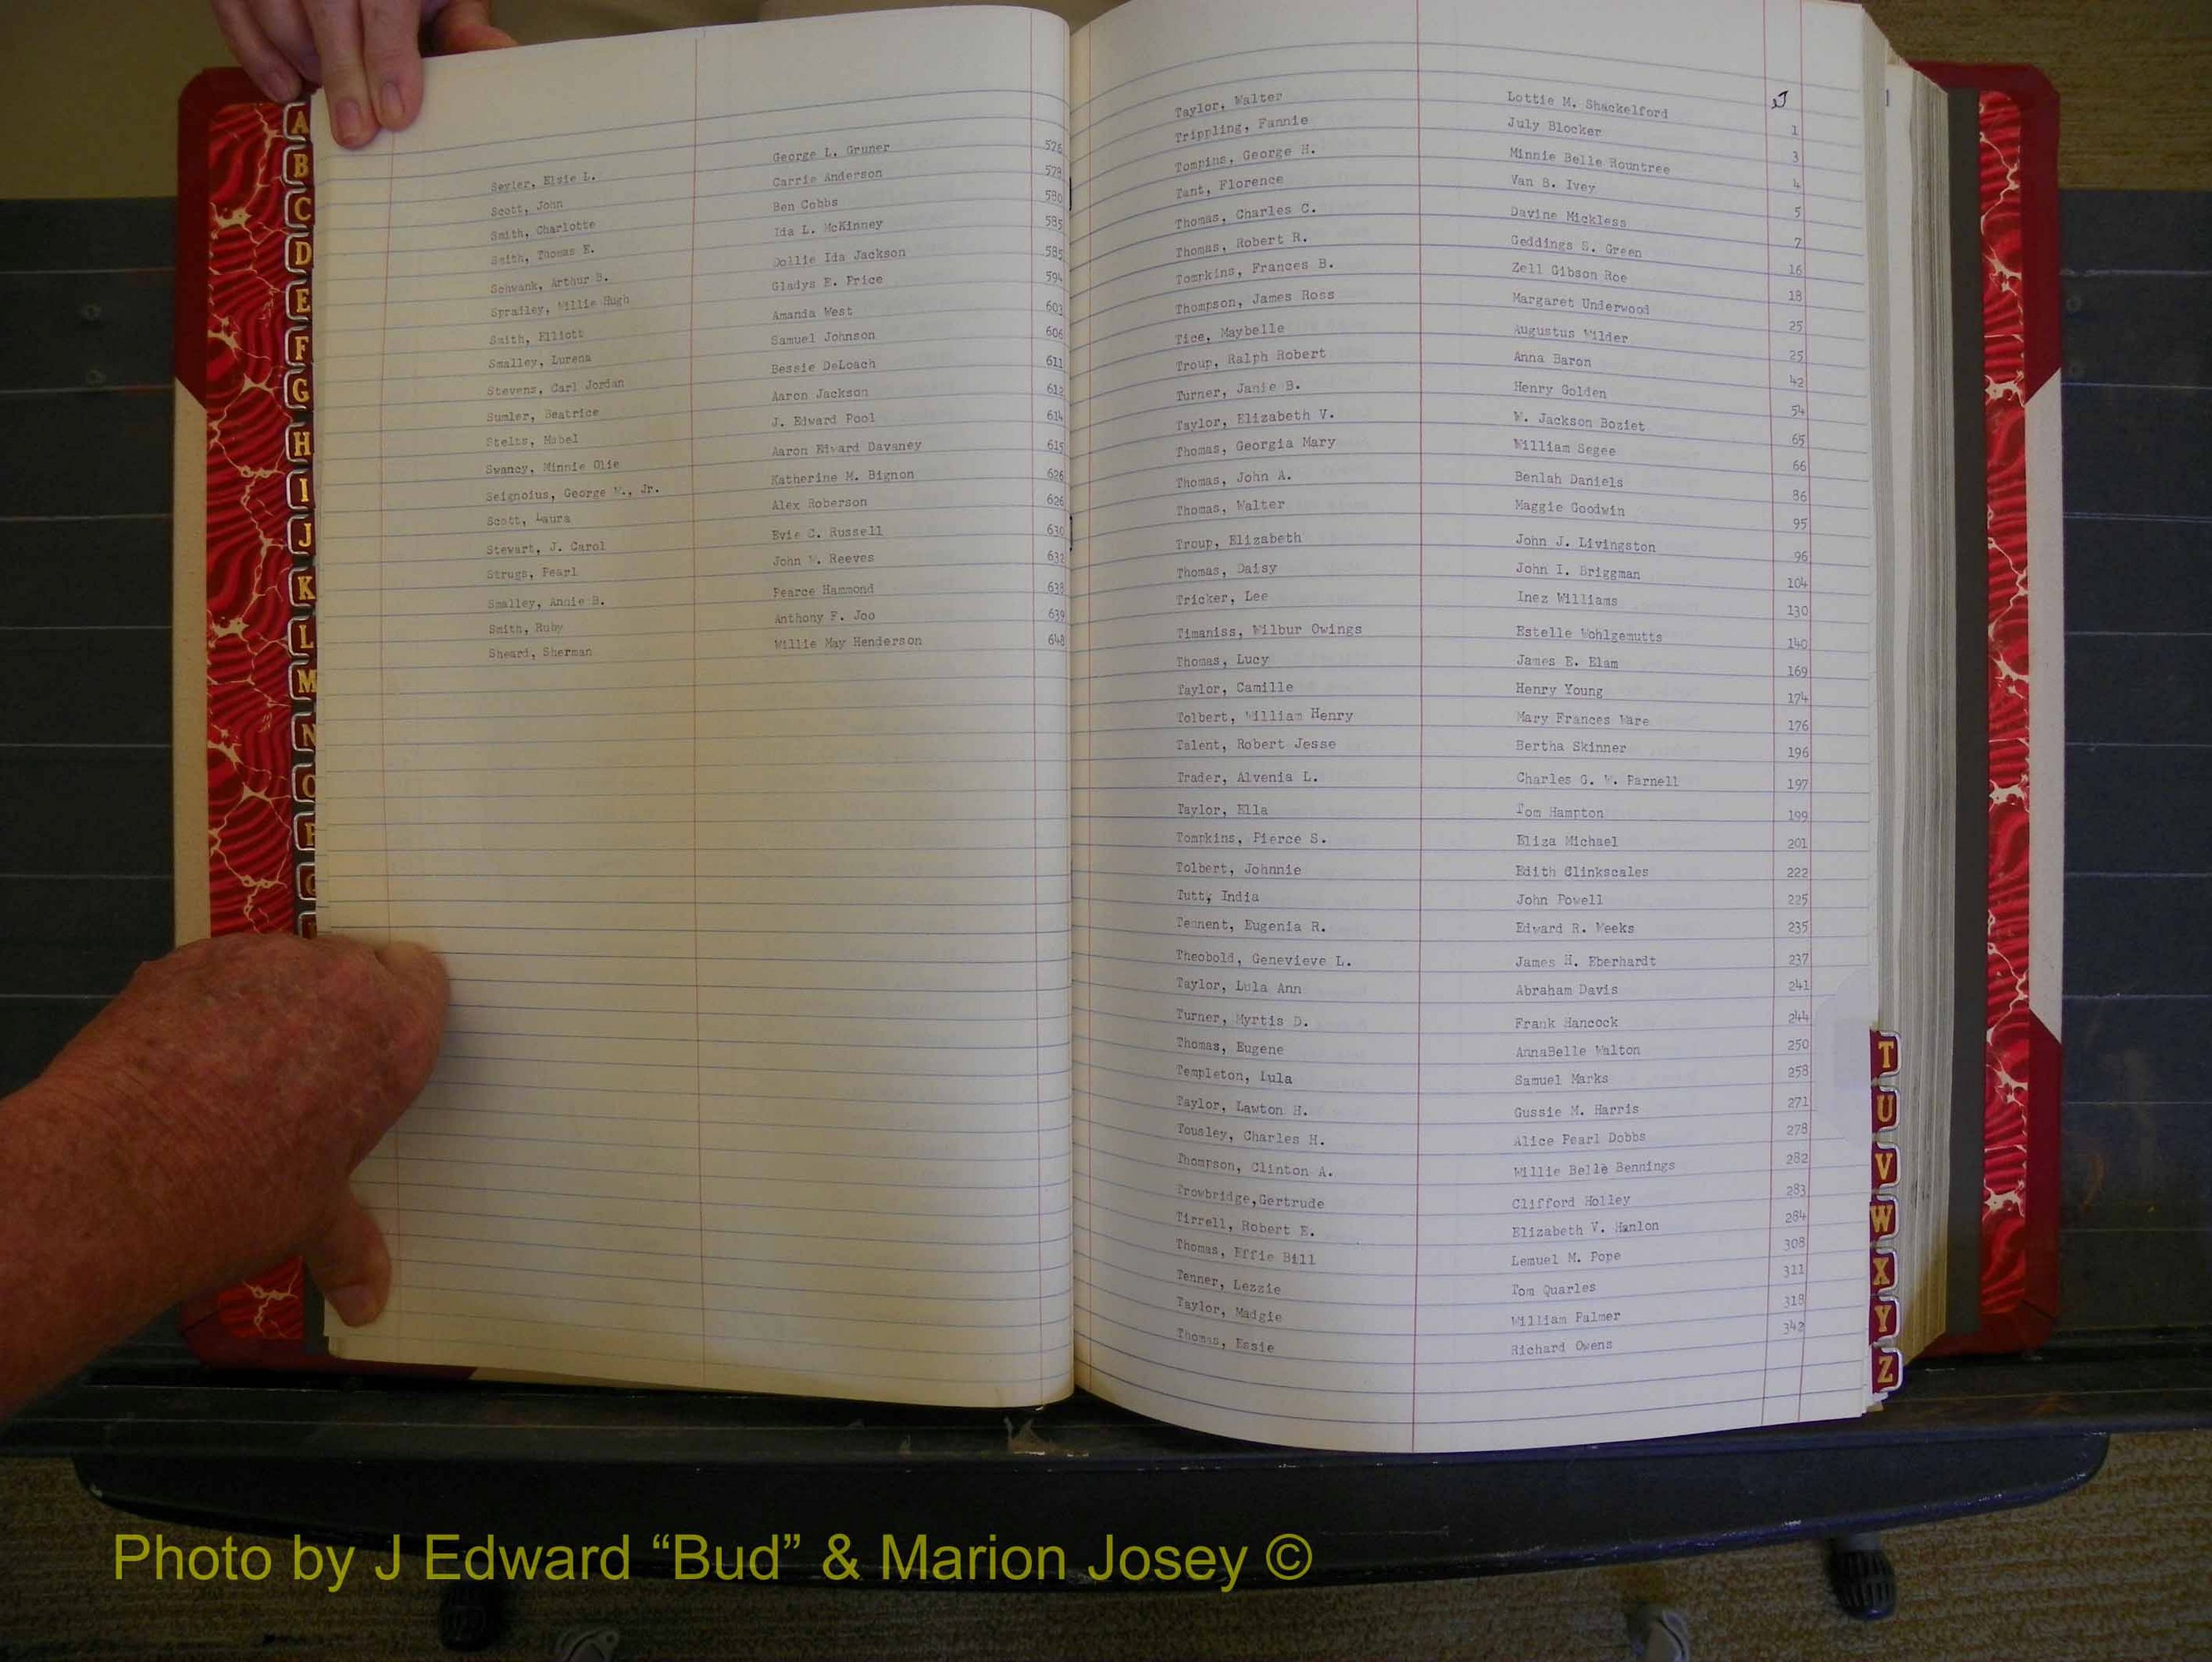 Elsie L. George L. Gruner
Scott, John Carrie Anderson 578
Smith, Charlotte Ben Cobbs 580
Smith, Thomas E. Ida L. McKinney 585
Schwank, Arthur B. Dollie Ida Jackson 585
Spradley, Willie Hugh Gladys E. Price 594
Smith, Elliott Amanda West 603
Smalley, Lurena Samuel Johnson 606
Stevens, Carl Jordan Bessie DeLoach 611
Sumler, Beatrice Aaron Jackson 612
Stelts, Mabel J. Edward Pool 614
Swancy, Minnie Olie Aaron Edward Davaney 615
Seignoius, George W., Jr. Katherine M. Bignon 626
Scott, Laura Alex Roberson 626
Stewart, J. Carol Evie C. Russell 630
Strugs, Pearl John W. Reeves 632
Smalley, Annie B. Pearce Hammond 638
Smith, Ruby Anthony F. Joo 639
Sheard, Sherman Willie May Henderson 648
J
Taylor, Walter Lottie M. Shackelford 1
Trippling, Fannie July Blocker 3
Tompins, George H. Minnie Belle Rountree 4
Tant, Florence Van B. Ivey 5
Thomas, Charles C. Davine Mickless 7
Thomas, Robert R. Geddings S. Green 16
Tompkins, Frances B. Zell Gibson Roe 18
Thompson, James Ross Margaret Underwood 25
Tice, Maybelle Augustus Wilder 25
Troup, Ralph Robert Anna Baron 42
Turner, Janie B. Henry Golden 54
Taylor, Elizabeth V. W. Jackson Boziet 65
Thomas, Georgia Mary William Segee 66
Thomas, John A. Benlah Daniels 86
Thomas, Walter Maggie Goodwin 95
Troup, Elizabeth John J. Livingston 96
Thomas, Daisy John I. Briggman 104
Tricker, Lee Inez Williams 130
Timaniss, Wilbur Owings Estelle Wohlgemutts 140
Thomas, Lucy James E. Elam 169
Taylor, Camille Henry Young 174
Tolbert, William Henry Mary Frances Ware 176
Talent, Robert Jesse Bertha Skinner 196
Trader, Alvenia L. Charles G. W. Parnell 197
Taylor, Ella Tom Hampton 199
Tompkins, Pierce S. Eliza Michael 201
Tolbert, Johnnie Edith Clinkscales 222
Tutt, India John Powell 225
Tennent, Eugenia R. Edward R. Weeks 235
Theobold, Genevieve L. James H. Eberhardt 237
Taylor, Lula Ann Abraham Davis 241
Turner, Myrtis D. Frank Hancock 244
Thomas, Eugene AnnaBelle Walton 250
Templeton, Lula Samuel Marks 258
Taylor, Lawton H. Gussie M. Harris 271
Tousley, Charles H. Alice Pearl Dobbs 278
Thompson, Clinton A. Willie Belle Bennings 282
Trowbridge,Gertrude Clifford Holley 283
Tirrell, Robert E. Elizabeth V. Hanlon 284
Thomas, Effie Bill Lemuel M. Pope 308
Tenner, Lezzie Tom Quarles 311
Taylor, Madgie William Palmer 318
Thomas, Essie Richard Owens 342
A
B
C
D
E
F
G
H
I
J
K
L
M
N
O
P
Q
T
U
V
W
X
Y
Z
Photo by J Edward “Bud” & Marion Josey ©